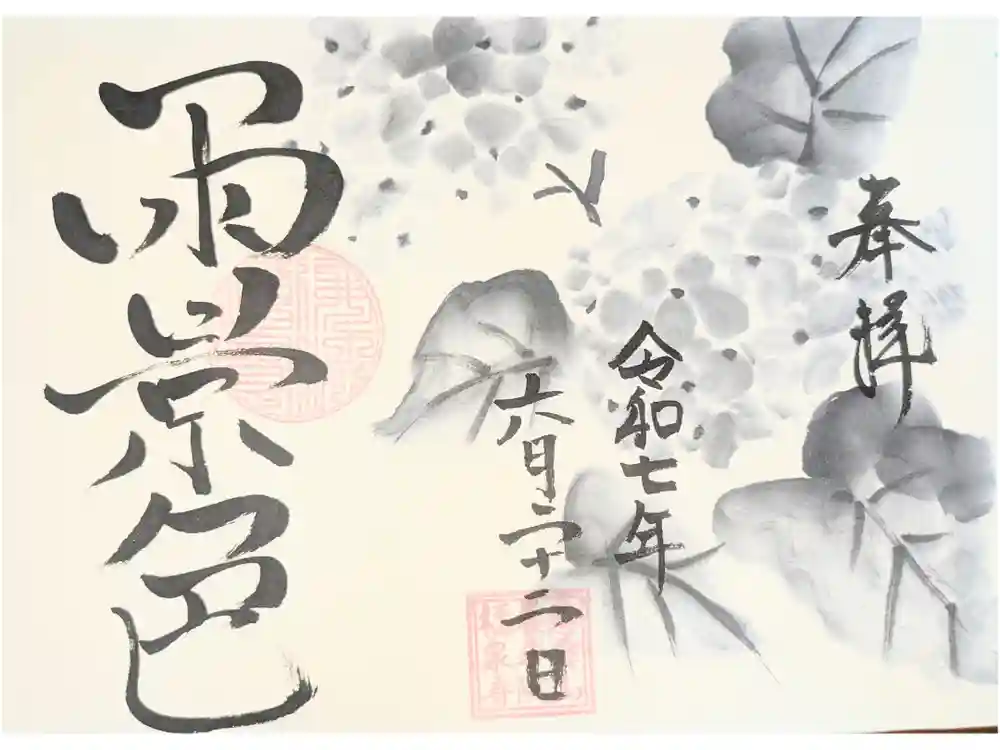 奉拝
令和七年
六月二十二日
雨景色